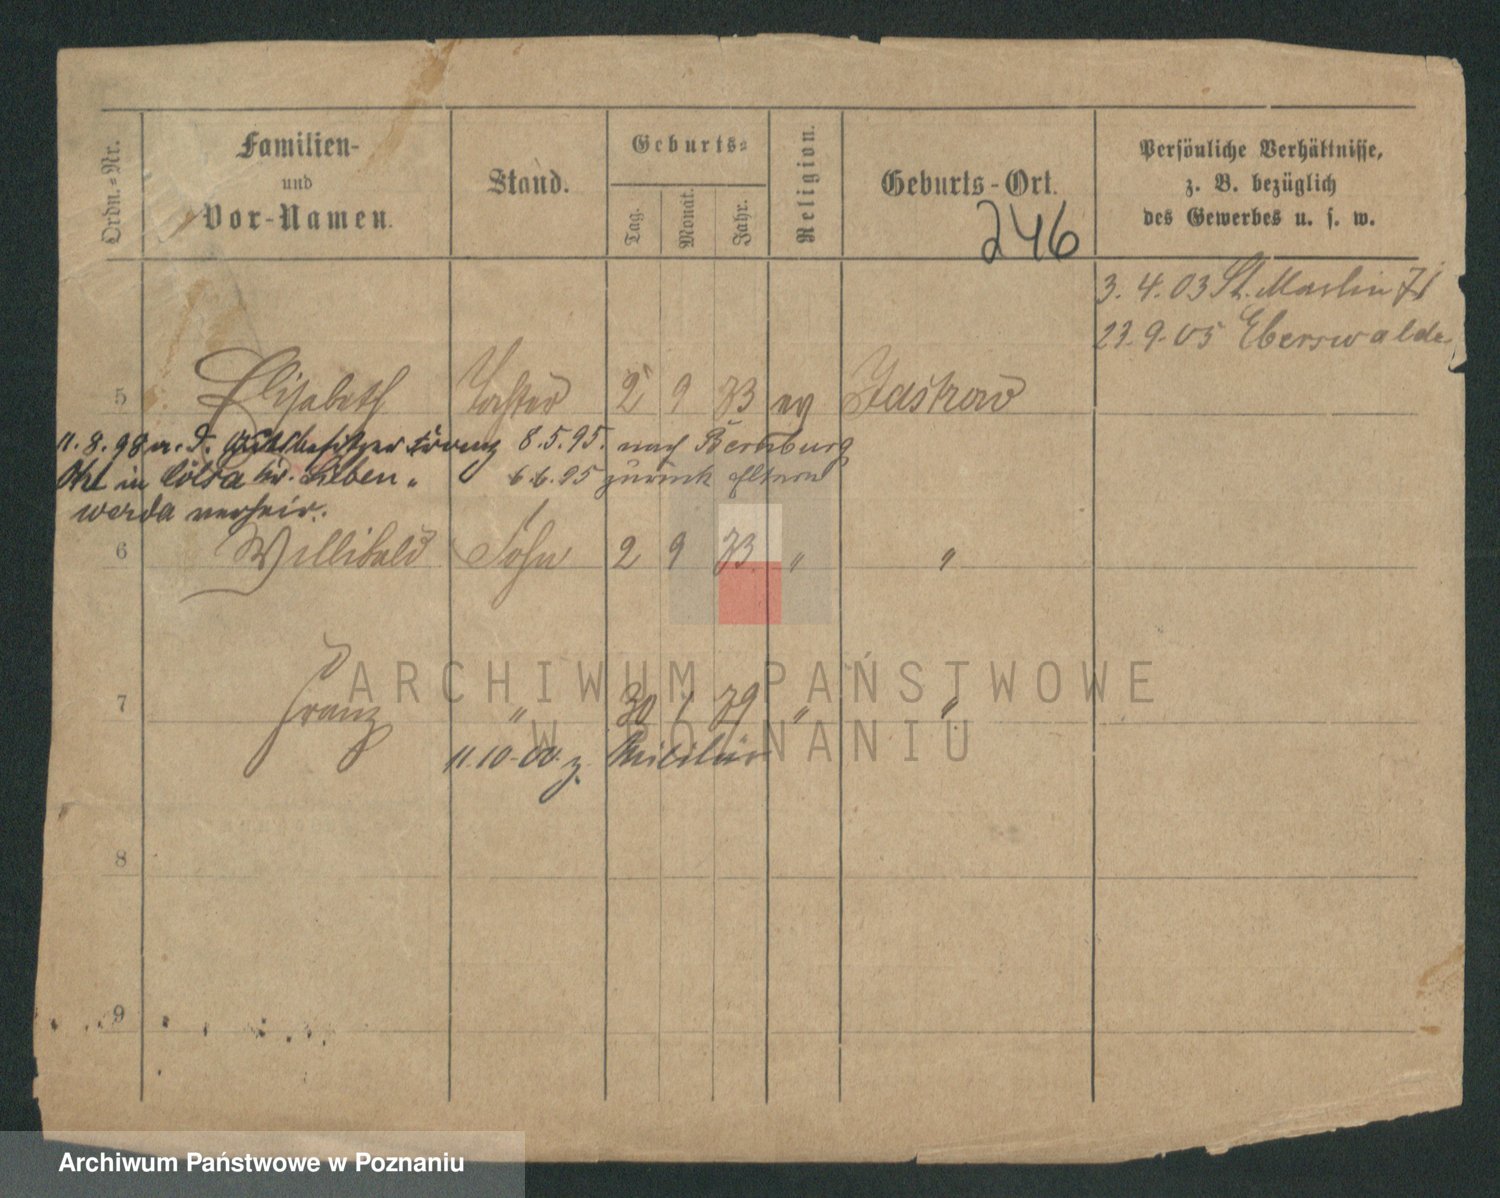 Ordn.=Nr.
Familien-
und
Vor-Namen.
Stand.
Geburts=
Tag.
Monat.
Jahr.
Religion.
Geburts-Ort.
Persönliche Verhältnisse,
z. B. bezüglich
des Gewerbes u. s. w.
246
3. 4. 03 St. Martin 71
23. 9. 05 Eberswalde
5 Elisabeth Tochter 2 9 73 ev Jastrow
11. 8. 98 m. d. Gutsbesitzer 8. 5. 95. nach Bernburg
in Kölsa Kr. Lieben„ 6. 6. 95 zurück Eltern
werda verheir.
6 Willibald Sohn 2 9 73. „ „
7 Franz „ 30 1 79 „ „
11. 10. 00. z. Militär
8
9
ARCHIWUM PAŃSTWOWE
W POZNANIU
Archiwum Państwowe w Poznaniu